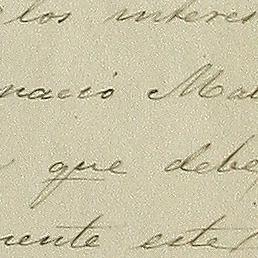 los interes
nació Ma
que debe
mente este